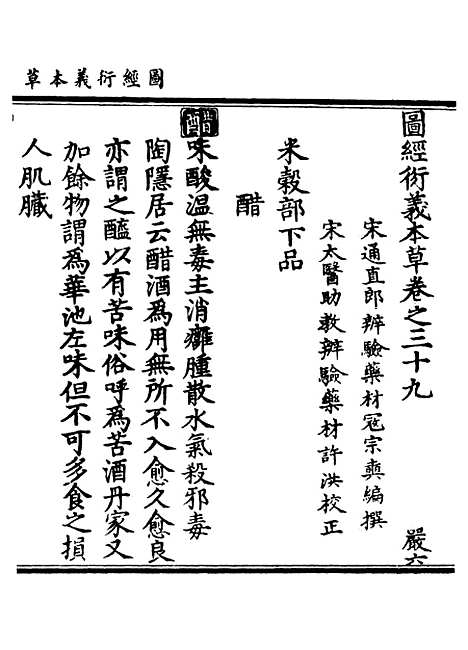 圖經衍義本草
圖經衍義本草卷之三十九 嚴六
宋通直郎辨驗藥材寇宗奭編撰
宋太醫助教辨驗藥材許洪校正
米穀部下品
醋
醋味酸溫無毒主消癰腫散水氣殺邪毒
陶隱居云醋酒為用無所不入愈久愈良
亦謂之醯以有苦味俗呼為苦酒丹家又
加餘物謂為華池左味但不可多食之損
人肌臟